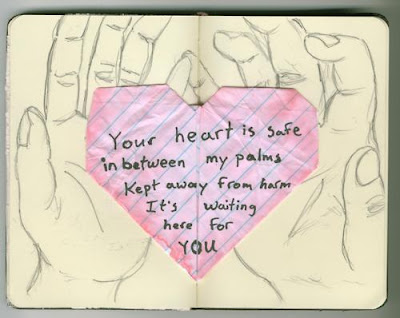 Your heart is safe
in between my palms
Kept away from harm
It's waiting
here for
YOU